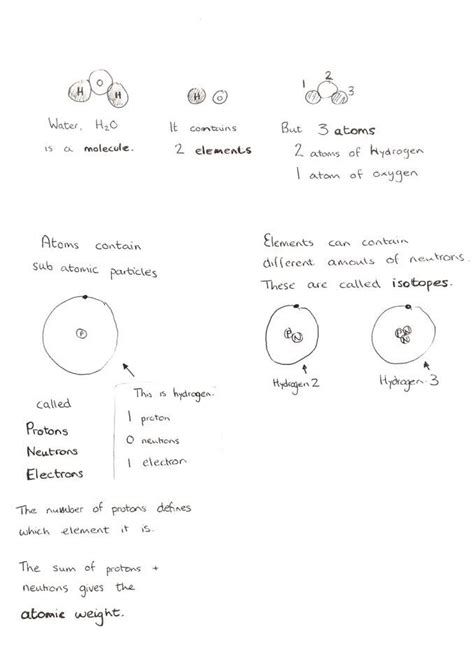 H O H
Water, H₂O
is a molecule.
H O
It contains
2 elements
1 2 3
But 3 atoms
2 atoms of Hydrogen
1 atom of oxygen
Atoms contain
sub atomic particles
P
called
Protons
Neutrons
Electrons
This is hydrogen.
1 proton
0 neutrons
1 electron
The number of protons defines
which element it is.
The sum of protons +
neutrons gives the
atomic weight.
Elements can contain
different amouts of neutrons.
These are called isotopes.
P N
Hydrogen 2
P N N
Hydrogen 3